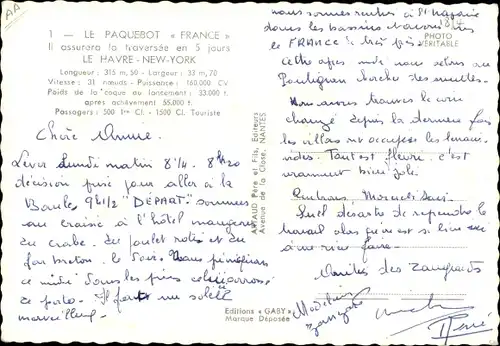 AA
1 — LE PAQUEBOT « FRANCE »
Il assurera la traversée en 5 jours
LE HAVRE - NEW-YORK
Longueur : 315 m, 50 - Largeur : 33 m, 70
Vitesse : 31 nœuds - Puissance : 160.000 CV
Poids de la coque au lancement : 33.000 t.
après achèvement 55.000 t.
Passagers : 500 1re Cl. - 1500 Cl. Touriste
Chère Annie.
Lever lundi matin 8/4. 8h20
décision prise pour aller à la
Baule 9h1/2 "DEPART" sommes
au croisé à l'hôtel mangeons
du crabe du poulet rotis et du
far breton. le soir
ce midi sous les pins
la porte. Il fait un soleil
merveilleux.
ARTAUD Père et Fils, Editeurs
Avenue de la Close, NANTES
Editions « GABY »
Marque Déposée
PHOTO
VÉRITABLE
nous sommes à St Nazaire
dans les bassins 8/4
le FRANCE de très près
cette après midi nous
Pouliguen chercher des moules.
Nous avons trouvés le coin
changé depuis la dernière fois
les villas sont
vides. Tout est fleuri c'est
vraiment bien joli.
Rentrons Mercredi Soir.
de reprendre le
travail alors qu'on est si bien
à ne rien faire.
Amitiés des
Madeleine
René